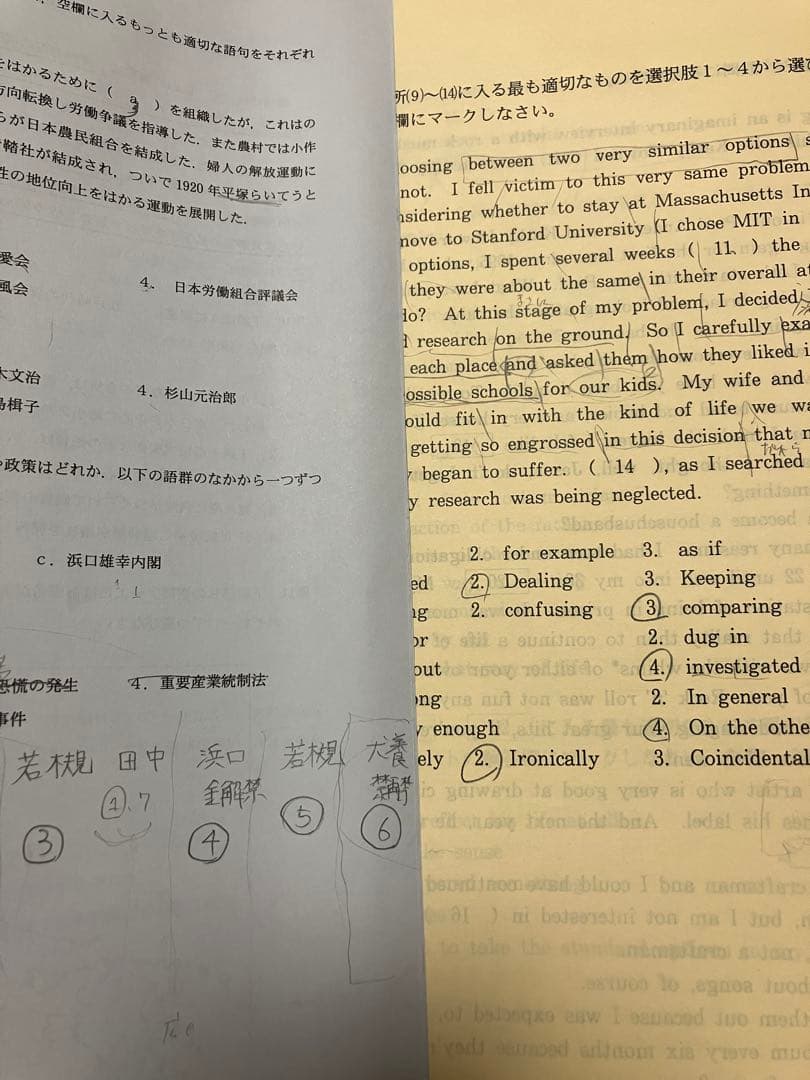 空欄に入るもっとも適切な語句をそれぞれ
をはかるために( a )を組織したが,これはの
方向転換し労働争議を指導した.また農村では小作
らが日本農民組合を結成した.婦人の解放運動に
鞜社が結成され,ついで1920年平塚らいてうと
性の地位向上をはかる運動を展開した.
愛会
風会
4. 日本労働組合評議会
木文治
島楫子
4. 杉山元治郎
政策はどれか.以下の語群のなかから一つずつ
c. 浜口雄幸内閣
恐慌の発生
4. 重要産業統制法
事件
若槻 田中 浜口 若槻 犬養
金解禁
①、7
③ ④ ⑤ ⑥
所(9)~(14)に入る最も適切なものを選択肢1~4から選び
欄にマークしなさい。
oosing between two very similar options s
not. I fell victim to this very same problem
nsidering whether to stay at Massachusetts In
move to Stanford University (I chose MIT in
options, I spent several weeks ( 11 ) the
(they were about the same in their overall at
do? At this stage of my problem, I decided
research on the ground. So I carefully exa
each place and asked them how they liked i
ossible schools for our kids. My wife and
ould fit in with the kind of life we wa
getting so engrossed in this decision that m
y began to suffer. ( 14 ), as I searched
y research was being neglected.
2. for example 3. as if
ed 2. Dealing 3. Keeping
ng 2. confusing 3. comparing
or 2. dug in
out 4. investigated
ong 2. In general
y enough 4. On the othe
ely 2. Ironically 3. Coincidental